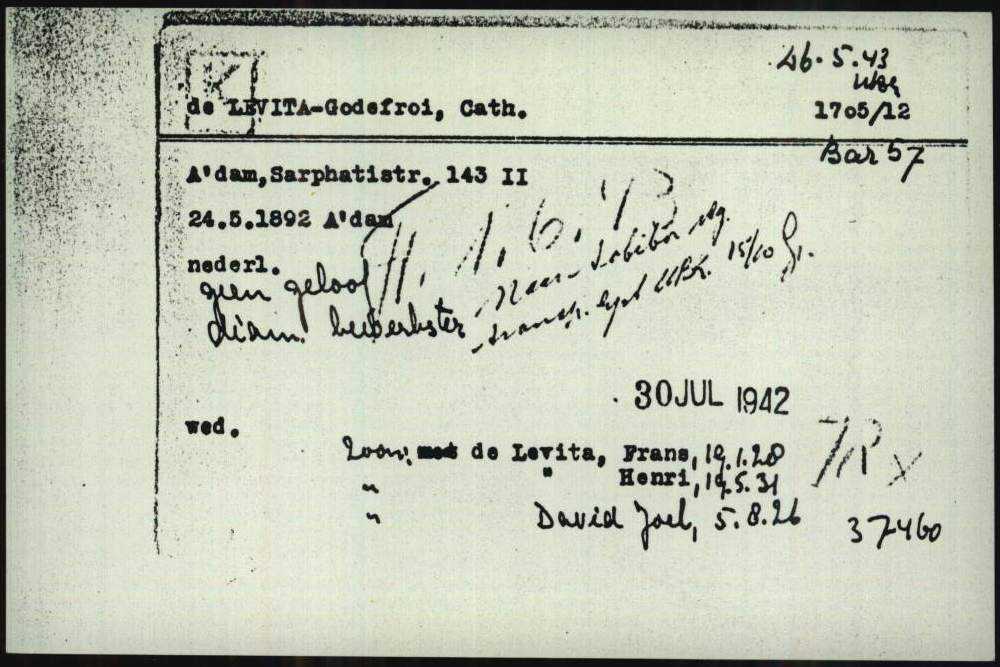 K
26.5.43
Wbg
de LEVITA-Godefroi, Cath.
1705/12
Bar 57
A'dam, Sarphatistr. 143 II
24.5.1892 A'dam
nederl.
geen geloof
diam. bewerkster
1.6.43
Naar Sobibor
15/10
30 JUL 1942
wed.
Zoon: met de Levita, Frans, 19.1.28
" " Henri, 19.5.31
" David Joel, 5.8.26
37460